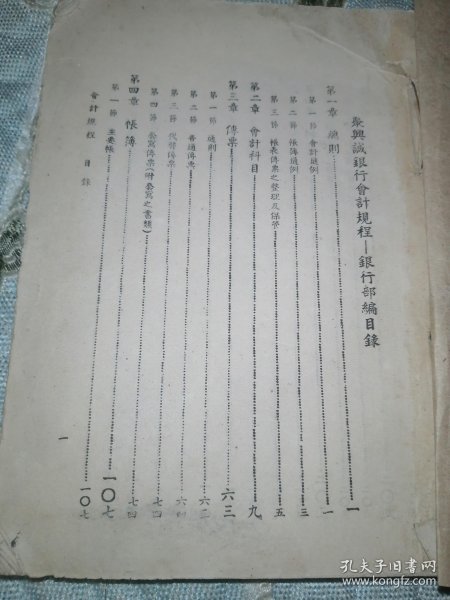 聚興誠銀行會計規程—銀行部編目錄
第一章 總則……一
第一節 會計通例……一
第二節 帳簿通例……三
第三節 帳表傳票之整理及保管……五
第二章 會計科目……九
第三章 傳票……六三
第一節 通則……六三
第二節 普通傳票……六三
第三節 代替傳票……六四
第四節 套寫傳票(附套寫之書類)……七四
第四章 帳簿……一〇七
第一節 主要帳……一〇七
會計規程 目錄
一
孔夫子旧书网
www.kongfz.com